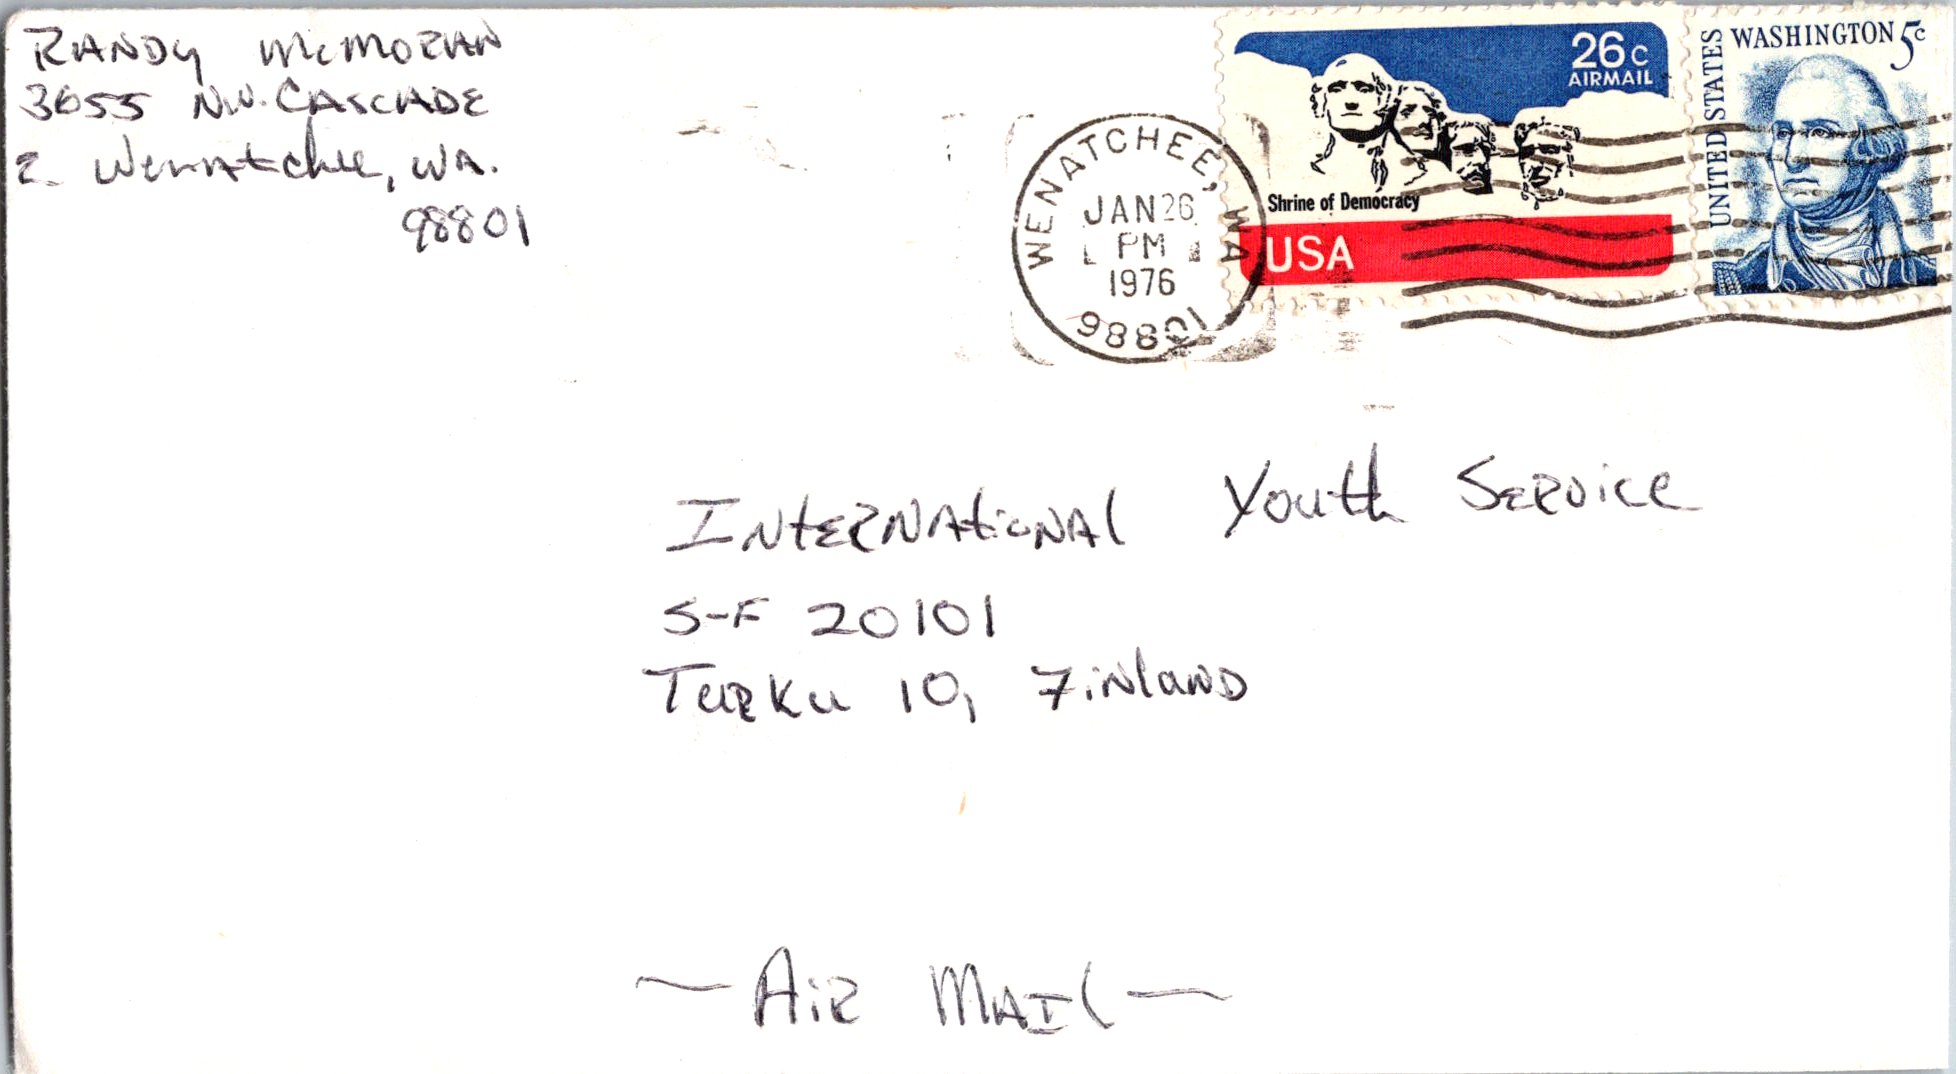 Randy McMoran
3655 NW. Cascade
E. Wenatchee, WA.
98801
WENATCHEE, WA
JAN 26
PM
1976
98801
26c
AIRMAIL
Shrine of Democracy
USA
UNITED STATES
WASHINGTON 5c
International Youth Service
S-F 20101
Turku 10, Finland
~ Air Mail ~